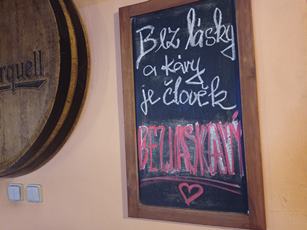 rquell
Bez lásky
a kávy
je člověk
BEZLÁSKAVÝ